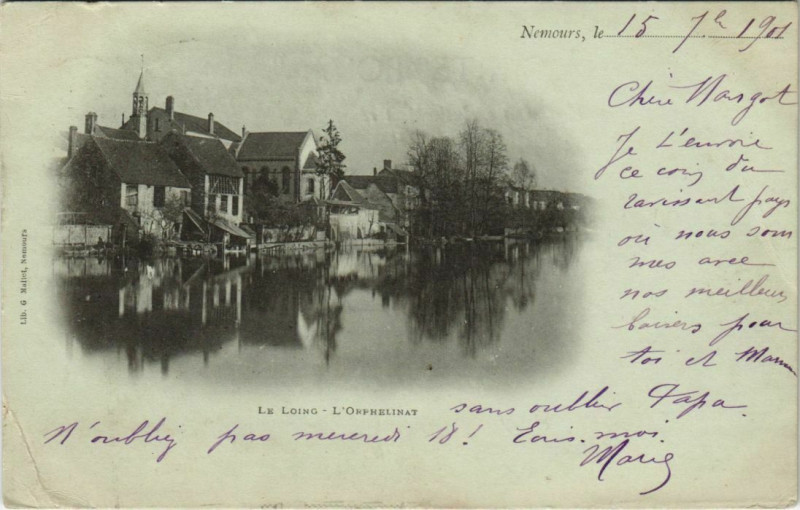 Nemours, le 15 7bre 1901
Chère Margot
Je t'envoie
ce coin du
ravissant pays
où nous som
mes avec
nos meilleurs
baisers pour
toi et Maman
sans oublier Papa.
N'oubliez pas mercredi 18! Ecris-moi.
Marie
LE LOING - L'ORPHELINAT
Lib. G Mallet, Nemours